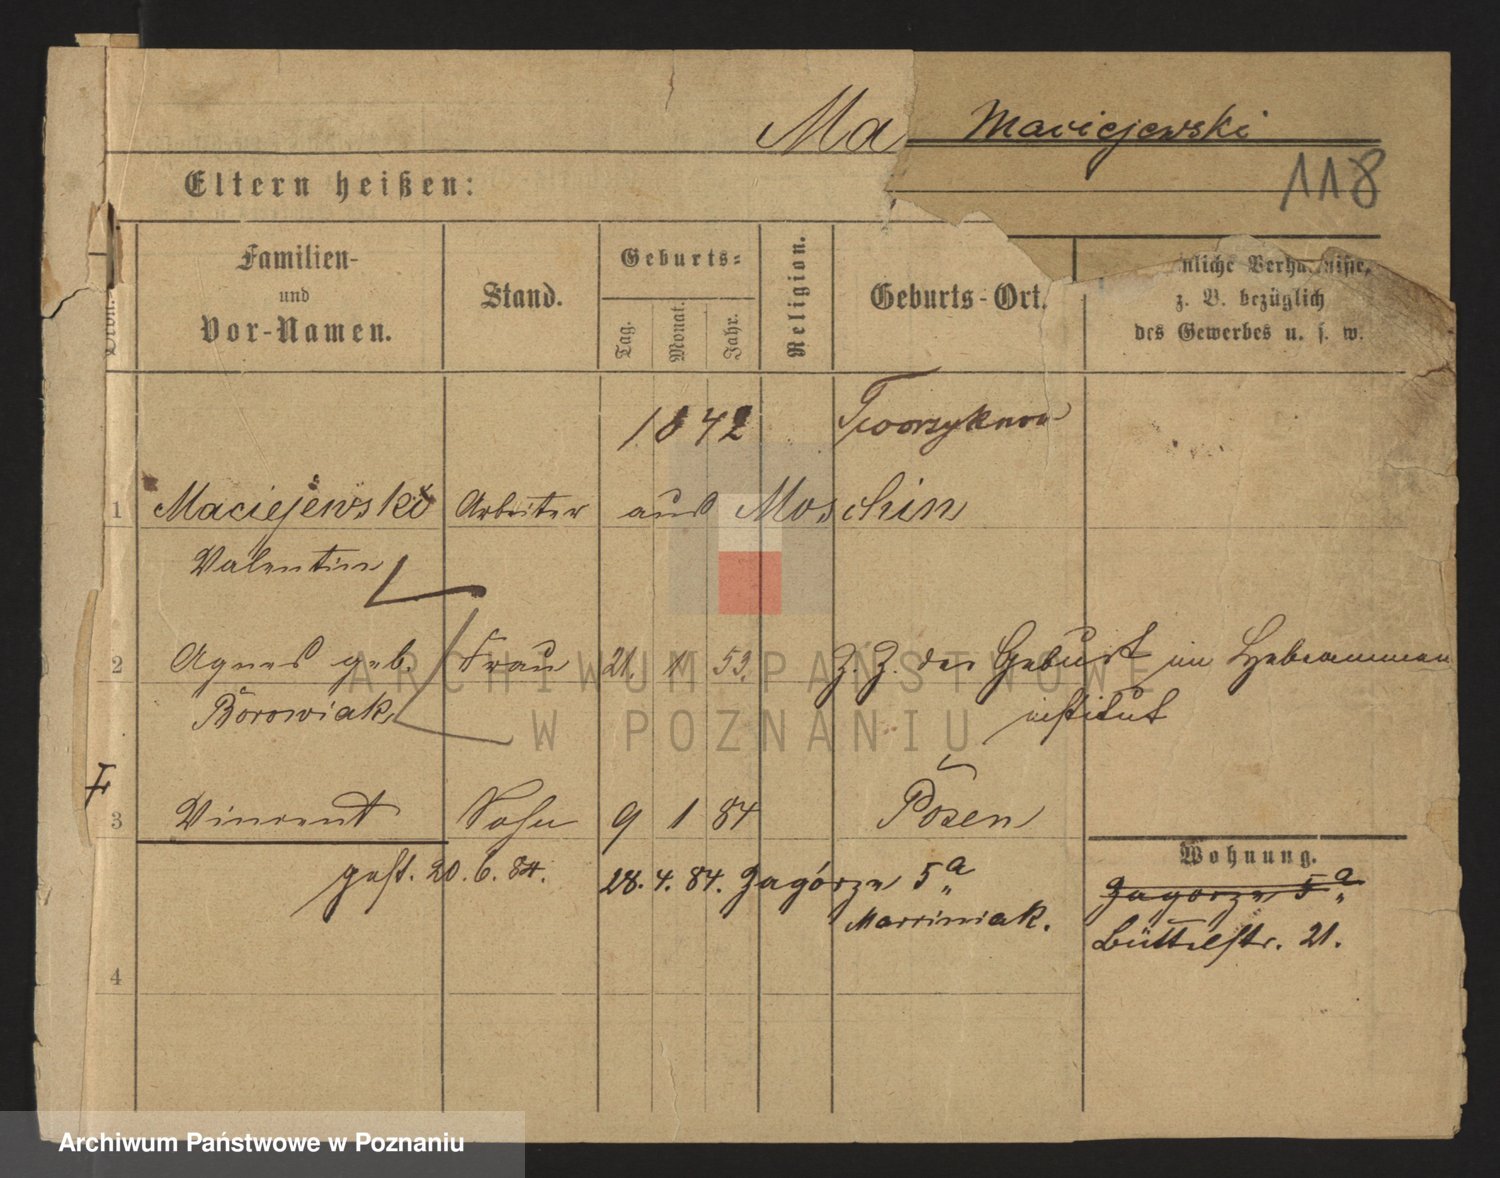 Ma Maciejewski
118
Eltern heißen:
Familien-
und
Vor-Namen.
Stand.
Geburts-
Tag.
Monat.
Jahr.
Religion.
Geburts-Ort.
z. B. bezüglich
des Gewerbes u. s. w.
1842
1 Maciejewski Arbeiter aus Moschin
Valentin
2 Agnes geb. Frau 21. 1 53. Z. Z. der Geburt im Hebeammen
Borowiak institut
3 Vincent Sohn 9 1 84 Posen
Wohnung.
gest. 20.6.84. 28.4.84. Zagórze 5a
Marciniak.
Zagorze 5a
Büttelstr. 21.
4
ARCHIWUM PAŃSTWOWE
W POZNANIU
Archiwum Państwowe w Poznaniu